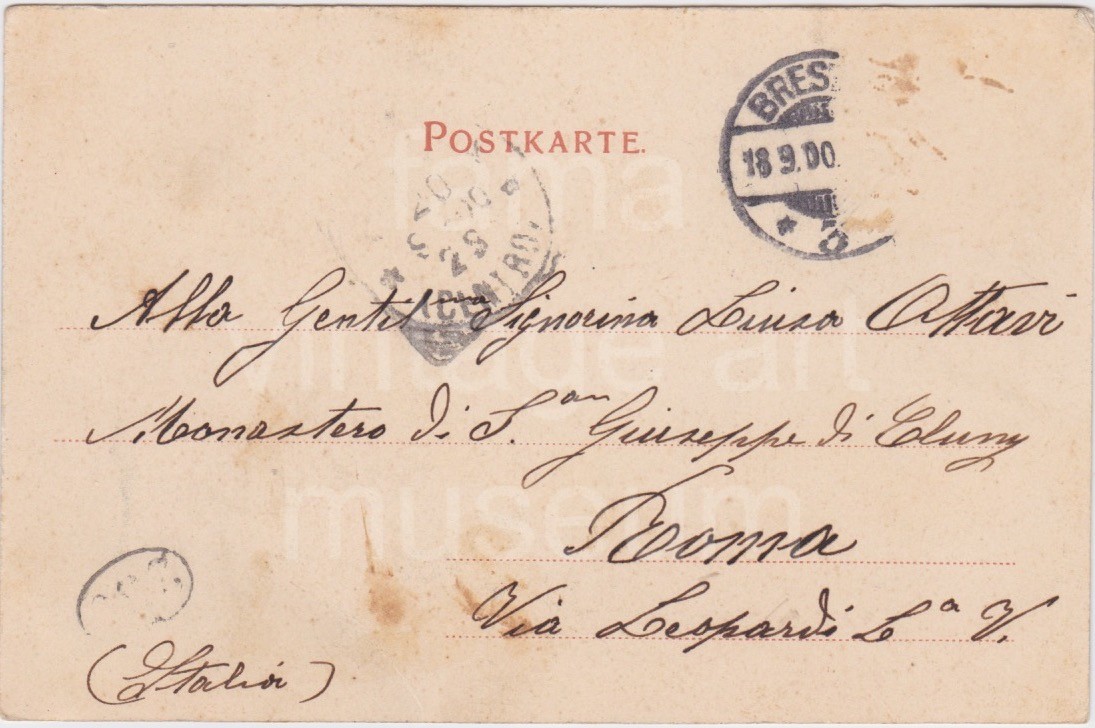 BRES
POSTKARTE.
18 9.00.
CENTRO
Alla Gentil.ma Signorina Luisa Ottavi
Monastero di S.an Giuseppe di Cluny
Roma
Via Leopardi L.a V.
(Italia)
fama
vintage art
museum